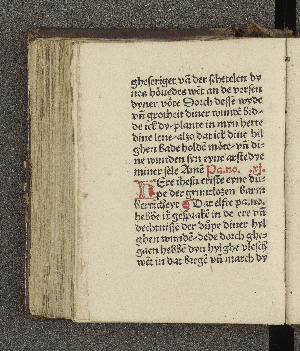 ghesereget vā der schetelen dy
nes hövedes wēt an de versen
dyner vöte Dorch desse wyde
vñ grotheit diner wundē bid-
de ick dy plante in myn herte
dine leue also dat ick dine hil
ghen bade holdē möte vñ di-
ne wunden syn eyne arstedye
miner sele Amē Pa. no. xj.
HEre ihesu criste eyne du-
pe der grūtlosen barm
herticheyt ¶ Dat elfte pa. no.
hebbe ik gespakē in de ere vñ
dechtnisse der dūpe diner hyl
ghen wundē dede dorch ghe-
gaen hebbē dyn hylghe vlesch
wēt in dat bregē vñ march dy